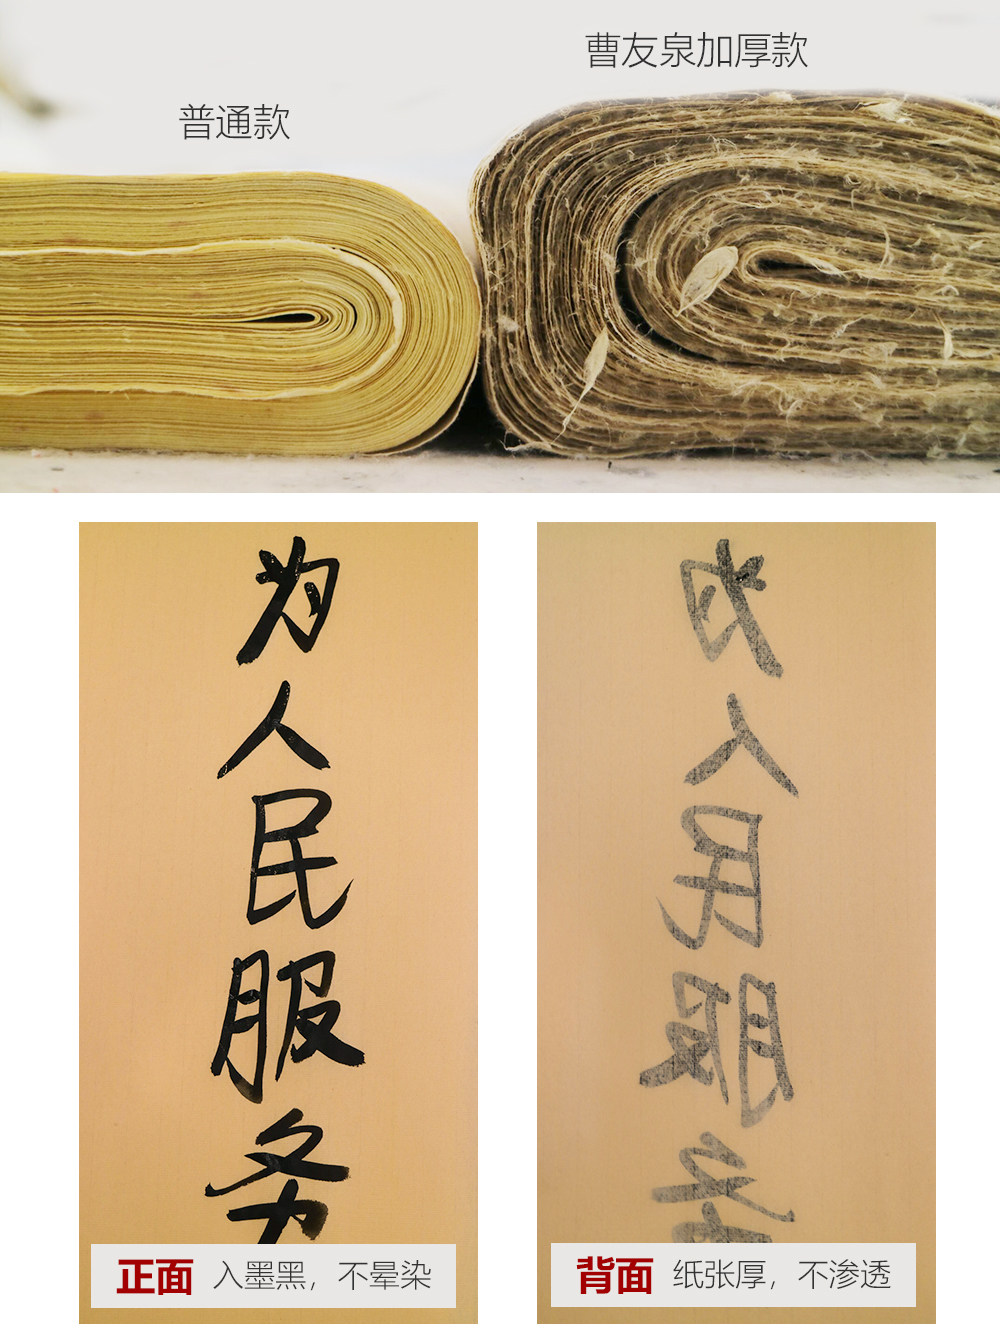 曹友泉加厚款
普通款
为
人
民
服
务
正面 入墨黑，不晕染
背面 纸张厚，不渗透